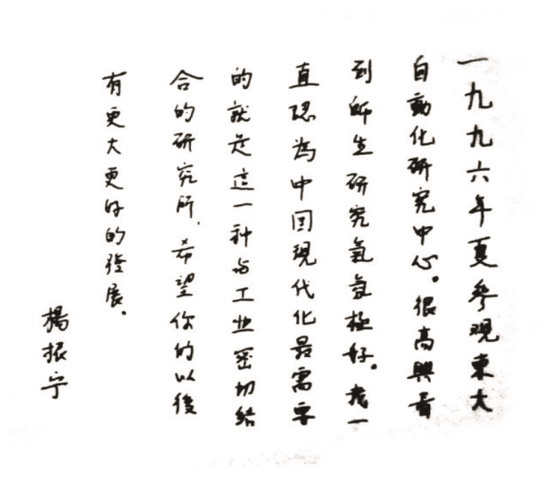 一九九六年夏參观東大
自動化研究中心。很高興看
到師生研究氣氛極好。我一
直認為中国現代化最需要
的就是這一种与工业密切結
合的研究所，希望你的以後
有更大更好的發展.
楊振宁